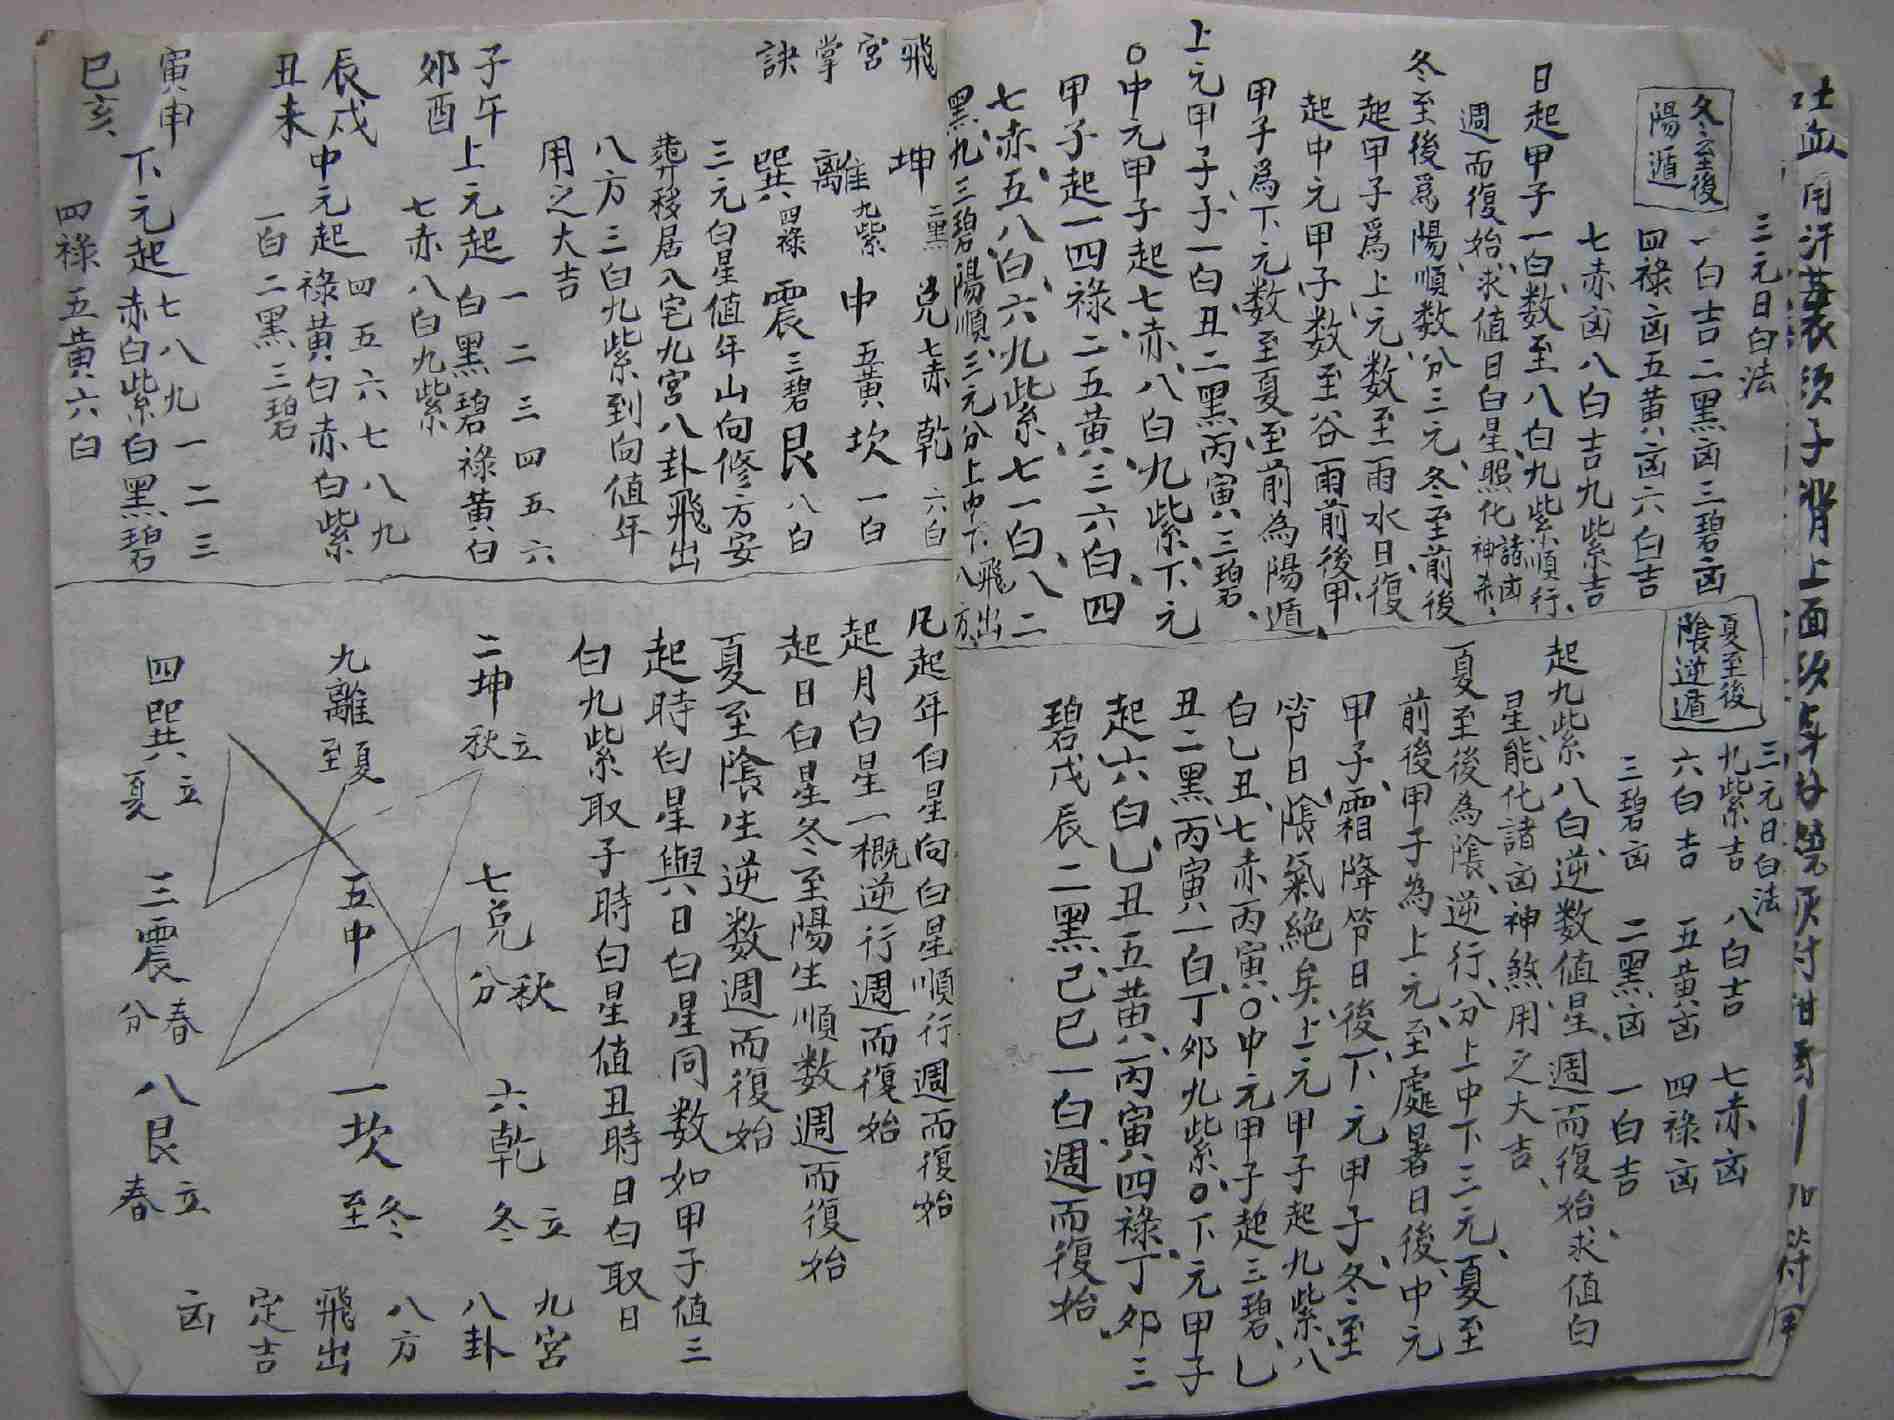 冬至後
陽遁
三元日白法
一白吉二黑凶三碧凶
四禄凶五黄凶六白吉
七赤凶八白吉九紫吉
日起甲子一白数至八白九紫順行
週而復始求值日白星照化諸凶神煞
冬至後爲陽順数分三元冬至前後
起甲子爲上元数至雨水日復
起中元甲子数至谷雨前後甲
甲子爲下元数至夏至前為陽遁
上元甲子子一白丑二黑丙寅三碧
○中元甲子起七赤八白九紫下元
甲子起一四禄二五黄三六白四
七赤五八白六九紫七一白八二
黑九三碧陽順三元分上中下飛出八方
夏至後
陰逆遁
三元日白法
九紫吉 八白吉 七赤凶
六白吉 五黄凶 四禄凶
三碧凶 二黑凶 一白吉
起九紫八白逆数值星週而復始求值白
星能化諸凶神煞用之大吉
夏至後為陰逆行分上中下三元夏至
前後甲子為上元至處暑日後中元
甲子霜降節日後下元甲子冬至
節日陰氣絶矣上元甲子起九紫八
白乙丑七赤丙寅○中元甲子起三碧乙
丑二黑丙寅一白丁夘九紫○下元甲子
起六白乙丑五黄丙寅四禄丁夘三
碧戊辰二黑己巳一白週而復始
飛宮掌訣
坤二黑 兌七赤 乾六白
離九紫 中五黄 坎一白
巽四禄 震三碧 艮八白
三元白星值年山向修方安
葬移居八宅九宮八卦飛出
八方三白九紫到向值年
用之大吉
子午
夘酉
上元起一二三四五六
白黑碧禄黄白
七赤八白九紫
辰戌
丑未
中元起四五六七八九
禄黄白赤白紫
一白二黑三碧
寅申
巳亥
下元起七八九一二三
赤白紫白黑碧
四禄五黄六白
凡起年白星向白星順行週而復始
起月白星一概逆行週而復始
起日白星冬至陽生順数週而復始
夏至陰生逆数週而復始
起時白星與日白星同数如甲子值三
白九紫取子時白星值丑時日白取日
二坤立秋 七兌秋分 六乾立冬
九離夏至 五中 一坎冬至
四巽立夏 三震春分 八艮立春
九宮
八卦
八方
飛出
定吉
凶